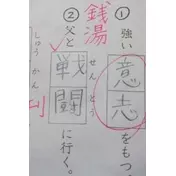 ① 強い意志をもつ。
銭湯
② 父と戦闘に行く。
せんとう
しゅうかん